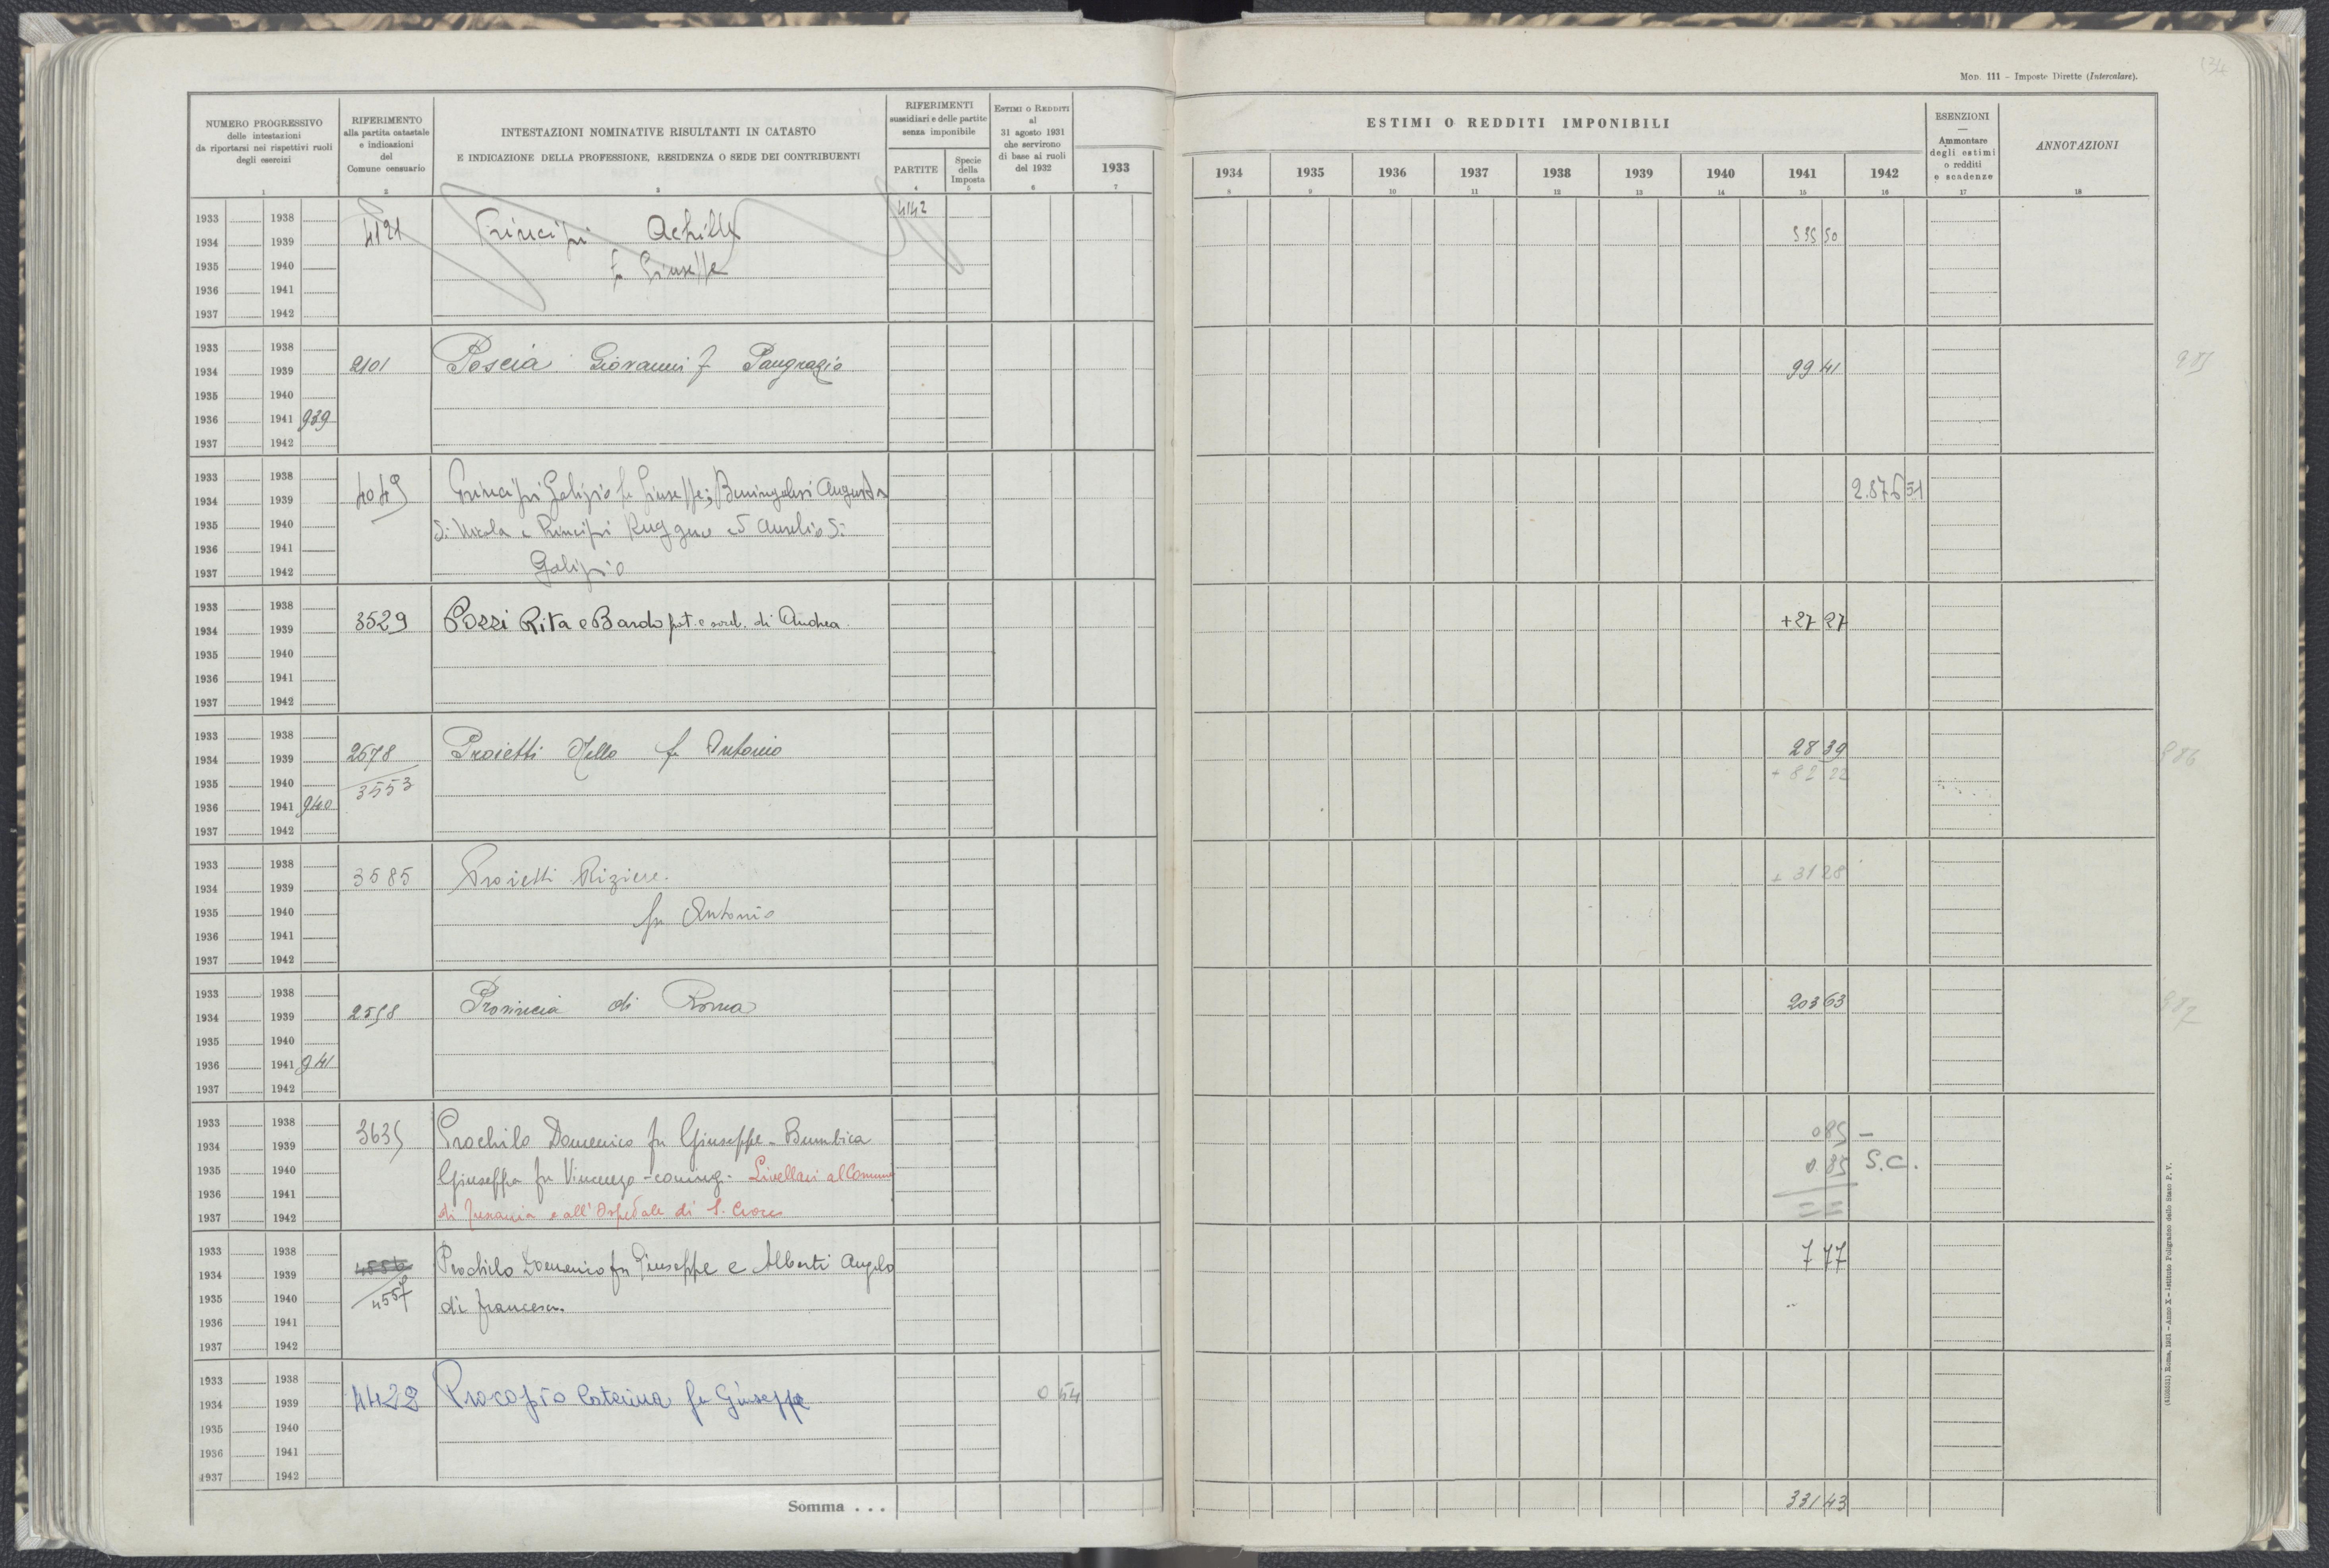 MOD. 111 - Imposte Dirette (Intercalare).
NUMERO PROGRESSIVO
delle intestazioni
da riportarsi nei rispettivi ruoli
degli esercizi
RIFERIMENTO
alla partita catastale
e indicazioni
del
Comune censuario
INTESTAZIONI NOMINATIVE RISULTANTI IN CATASTO
E INDICAZIONE DELLA PROFESSIONE, RESIDENZA O SEDE DEI CONTRIBUENTI
RIFERIMENTI
sussidiari e delle partite
senza imponibile
PARTITE
Specie
della
Imposta
ESTIMI O REDDITI
al
31 agosto 1931
che servirono
di base ai ruoli
del 1932
1933
ESTIMI O REDDITI IMPONIBILI
1934 1935 1936 1937 1938 1939 1940 1941 1942
ESENZIONI
—
Ammontare
degli estimi
o redditi
e scadenze
ANNOTAZIONI
1 2 3 4 5 6 7 8 9 10 11 12 13 14 15 16 17 18
1933 1938 4142
1934 1939 4121 Principi Achille 535 50
1935 1940 fu Giuseppe
1936 1941
1937 1942
1933 1938
1934 1939 2101 Poscia Giovanni f. Pangrazio 99 41
1935 1940
1936 1941 939
1937 1942
1933 1938
1934 1939 4049 Principi Galizio fu Giuseppe; Augusta 2.876 51
1935 1940 di Nicola e Principi Ruggero ed Aurelio di
1936 1941
1937 1942 Galizio
1933 1938
1934 1939 3529 Pozzi Rita e Bardo di Andrea +27 27
1935 1940
1936 1941
1937 1942
1933 1938
1934 1939 2678 Proietti Nello fu Antonio 28 39
1935 1940 3553 + 82 22
1936 1941 940
1937 1942
886
1933 1938
1934 1939 3585 Proietti Riziere + 31 28
1935 1940 fu Antonio
1936 1941
1937 1942
1933 1938
1934 1939 2598 Provincia di Roma 203 63
1935 1940
1936 1941 941
1937 1942
887
1933 1938
1934 1939 3635 Prochilo Domenico fu Giuseppe - Bumbica 0 85 –
1935 1940 Giuseppa fu Vincenzo - coniug. - Livellari al Comune 0 85 S.C.
1936 1941
1937 1942 di e all'Ospedale di S. Croce = =
1933 1938
1934 1939 4556 Prochilo Domenico fu Giuseppe e Alberti Angelo 7 77
1935 1940 4557 di Francesco
1936 1941
1937 1942
1933 1938
1934 1939 4428 Procopio Caterina fu Giuseppe 0 54
1935 1940
1936 1941
1937 1942
Somma . . . 331 43
Roma, 1931 - Anno X - Istituto Poligrafico dello Stato P. V.